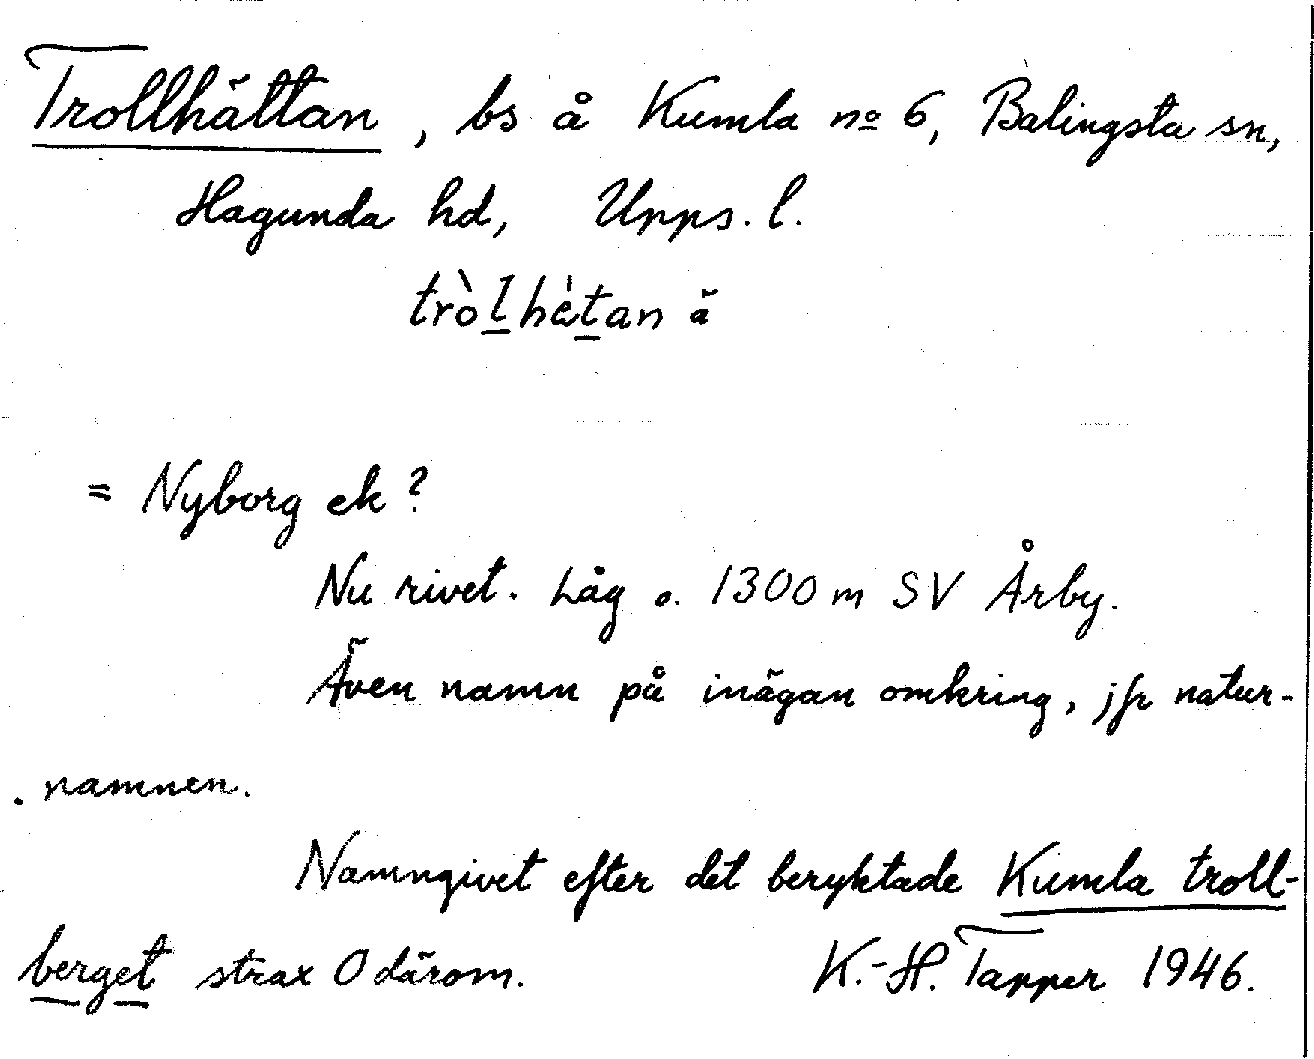 Trollhättan, bs å Kumla nº 6, Balingsta sn,
Hagunda hd, Upps. l.
tròlhètan ä
= Nyborg ek?
Nu rivet. Låg o. 1300 m SV Årby.
Även namn på inägan omkring, jfr natur-
namnen.
Namngivet efter det beryktade Kumla troll-
berget strax O därom. K.-H. Tapper 1946.